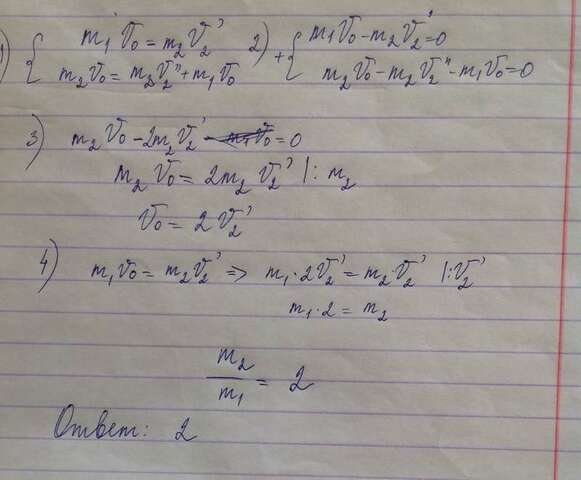 1) { m₁ v₀ = m₂ v₂' 2) + { m₁v₀ - m₂ v₂' = 0
m₂ v₀ = m₂ v₂'' + m₁ v₀ m₂ v₀ - m₂ v₂'' - m₁ v₀ = 0
3) m₂ v₀ - 2m₂ v₂' = 0
m₂ v₀ = 2m₂ v₂' |: m₂
v₀ = 2 v₂'
4) m₁ v₀ = m₂ v₂' => m₁ · 2 v₂' = m₂ v₂' |: v₂'
m₁ · 2 = m₂
m₂ / m₁ = 2
Ответ: 2